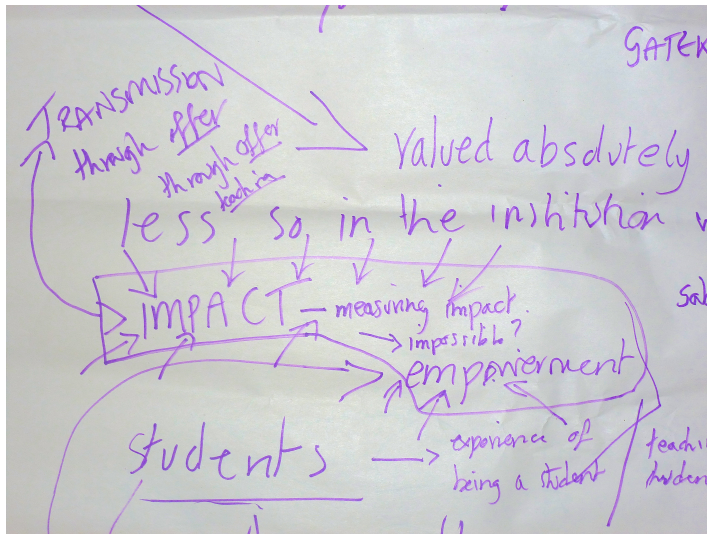 GATEK
TRANSMISSION
through offer
through offer
teaching
valued absolutely
less so in the institution
IMPACT — measuring impact.
impossible?
empowerment
students
experience of
being a student